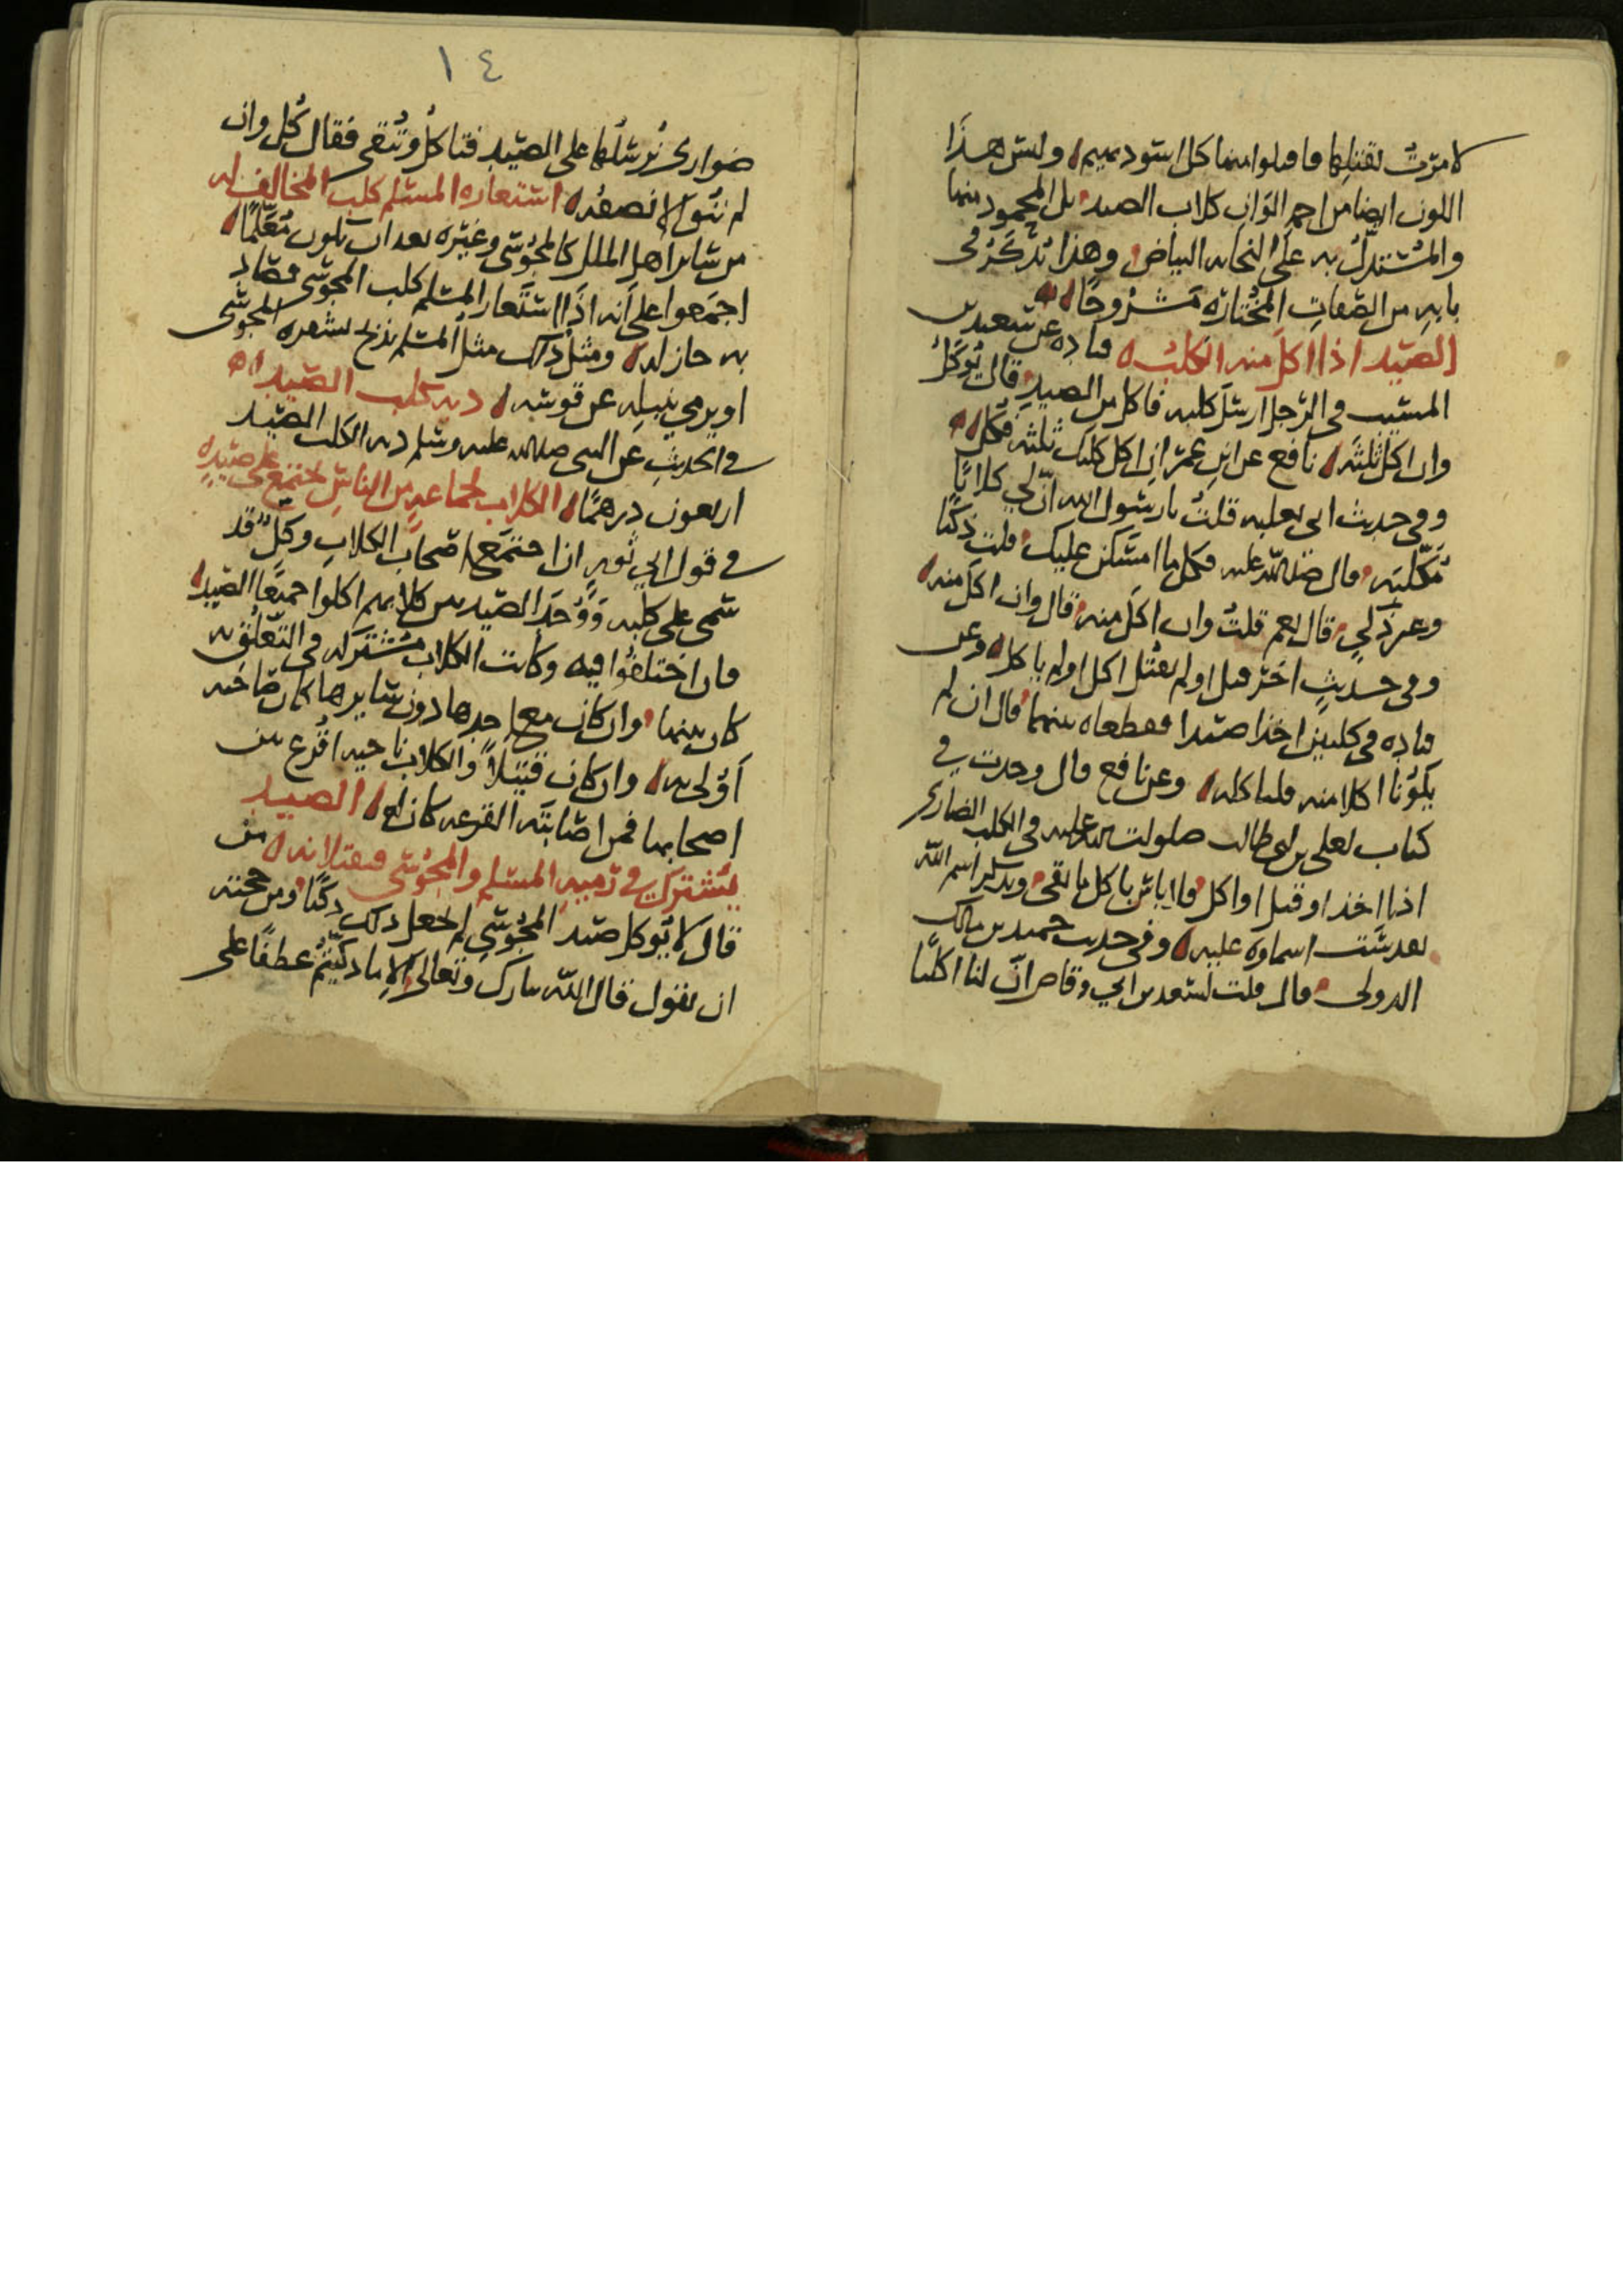 لامرت بقتلها فاقتلوا منها كل اسود بهيم وليس هذا
اللون ايضا من احمر الوان كلاب الصيد بل المحمود منها
والمستدل به على النجابه البياض وهذا يذكر في
بابه من الصفات المختاره مشروحا
الصيد اذا اكل منه الكلب قتاده عن سعيد بن
المسيب في الرجل ارسل كلبه فاكل من الصيد قال يؤكل
وان اكل ثلثه نافع عن ابن عمر ان اكل كلبك ثلثه فكل
وفي حديث ابي ثعلبه قلت يا رسول الله ان لي كلابا
مكلبه قال صلى الله عليه فكل ما امسكن عليك قلت ذكيا
وغير ذكي قال نعم قلت وان اكل منه قال وان اكل منه
وفي حديث اخر قتل او لم يقتل اكل او لم ياكل وعن
قتاده في كلبين اخذا صيدا فقطعاه بينهما قال ان لم
يكونا اكلا منه فلياكله وعن نافع قال وجدت في
كتاب لعلي بن ابي طالب صلوات الله عليه في الكلب الضاري
اذا اخذ او قتل او اكل فلا باس باكل ما بقي ويذكر اسم الله
تقدست اسماوه عليه وفي حديث حميد بن مالك
الدولي قال قلت لسعد بن ابي وقاص ان لنا اكلبا
١٤
ضواري نرسلها على الصيد فتاكل وتبقي فقال كل وان
لم تبق الا نصفه استعاره المسلم كلب المخالف له
من ساير اهل الملل كالمجوسي وغيره بعد ان يكون معلما
اجمعوا على انه اذا استعار المسلم كلب المجوسي فصاد
به جاز له ومثل ذلك مثل المسلم يذبح بشفره المجوسي
او يرمي بنبله عن قوسه ديه كلب الصيد
في الحديث عن النبي صلى الله عليه وسلم ديه الكلب الصيد
اربعون درهما الكلاب لجماعه من الناس تجتمع على صيده
في قول ابي ثور اذا اجتمع اصحاب الكلاب وكل قد
سمى على كلبه ووجد الصيد بين كلابهم اكلوا جميعا الصيد
فان اختلفوا فيه وكانت الكلاب مشتركه في التعلق به
كان بينهما وان كان مع احدها دون سايرها كان صاحبه
اولى به وان كان قتيلا والكلاب ناحيه اقرع بين
اصحابها فمن اصابته القرعه كان له الصيد
يشترك في رميه المسلم والمجوسي فيقتلانه من
قال لا يؤكل صيد المجوسي لم يجعل ذلك ذكيا ومن حجته
ان يقول قال الله تبارك وتعالى الا ما ذكيتم عطفا على